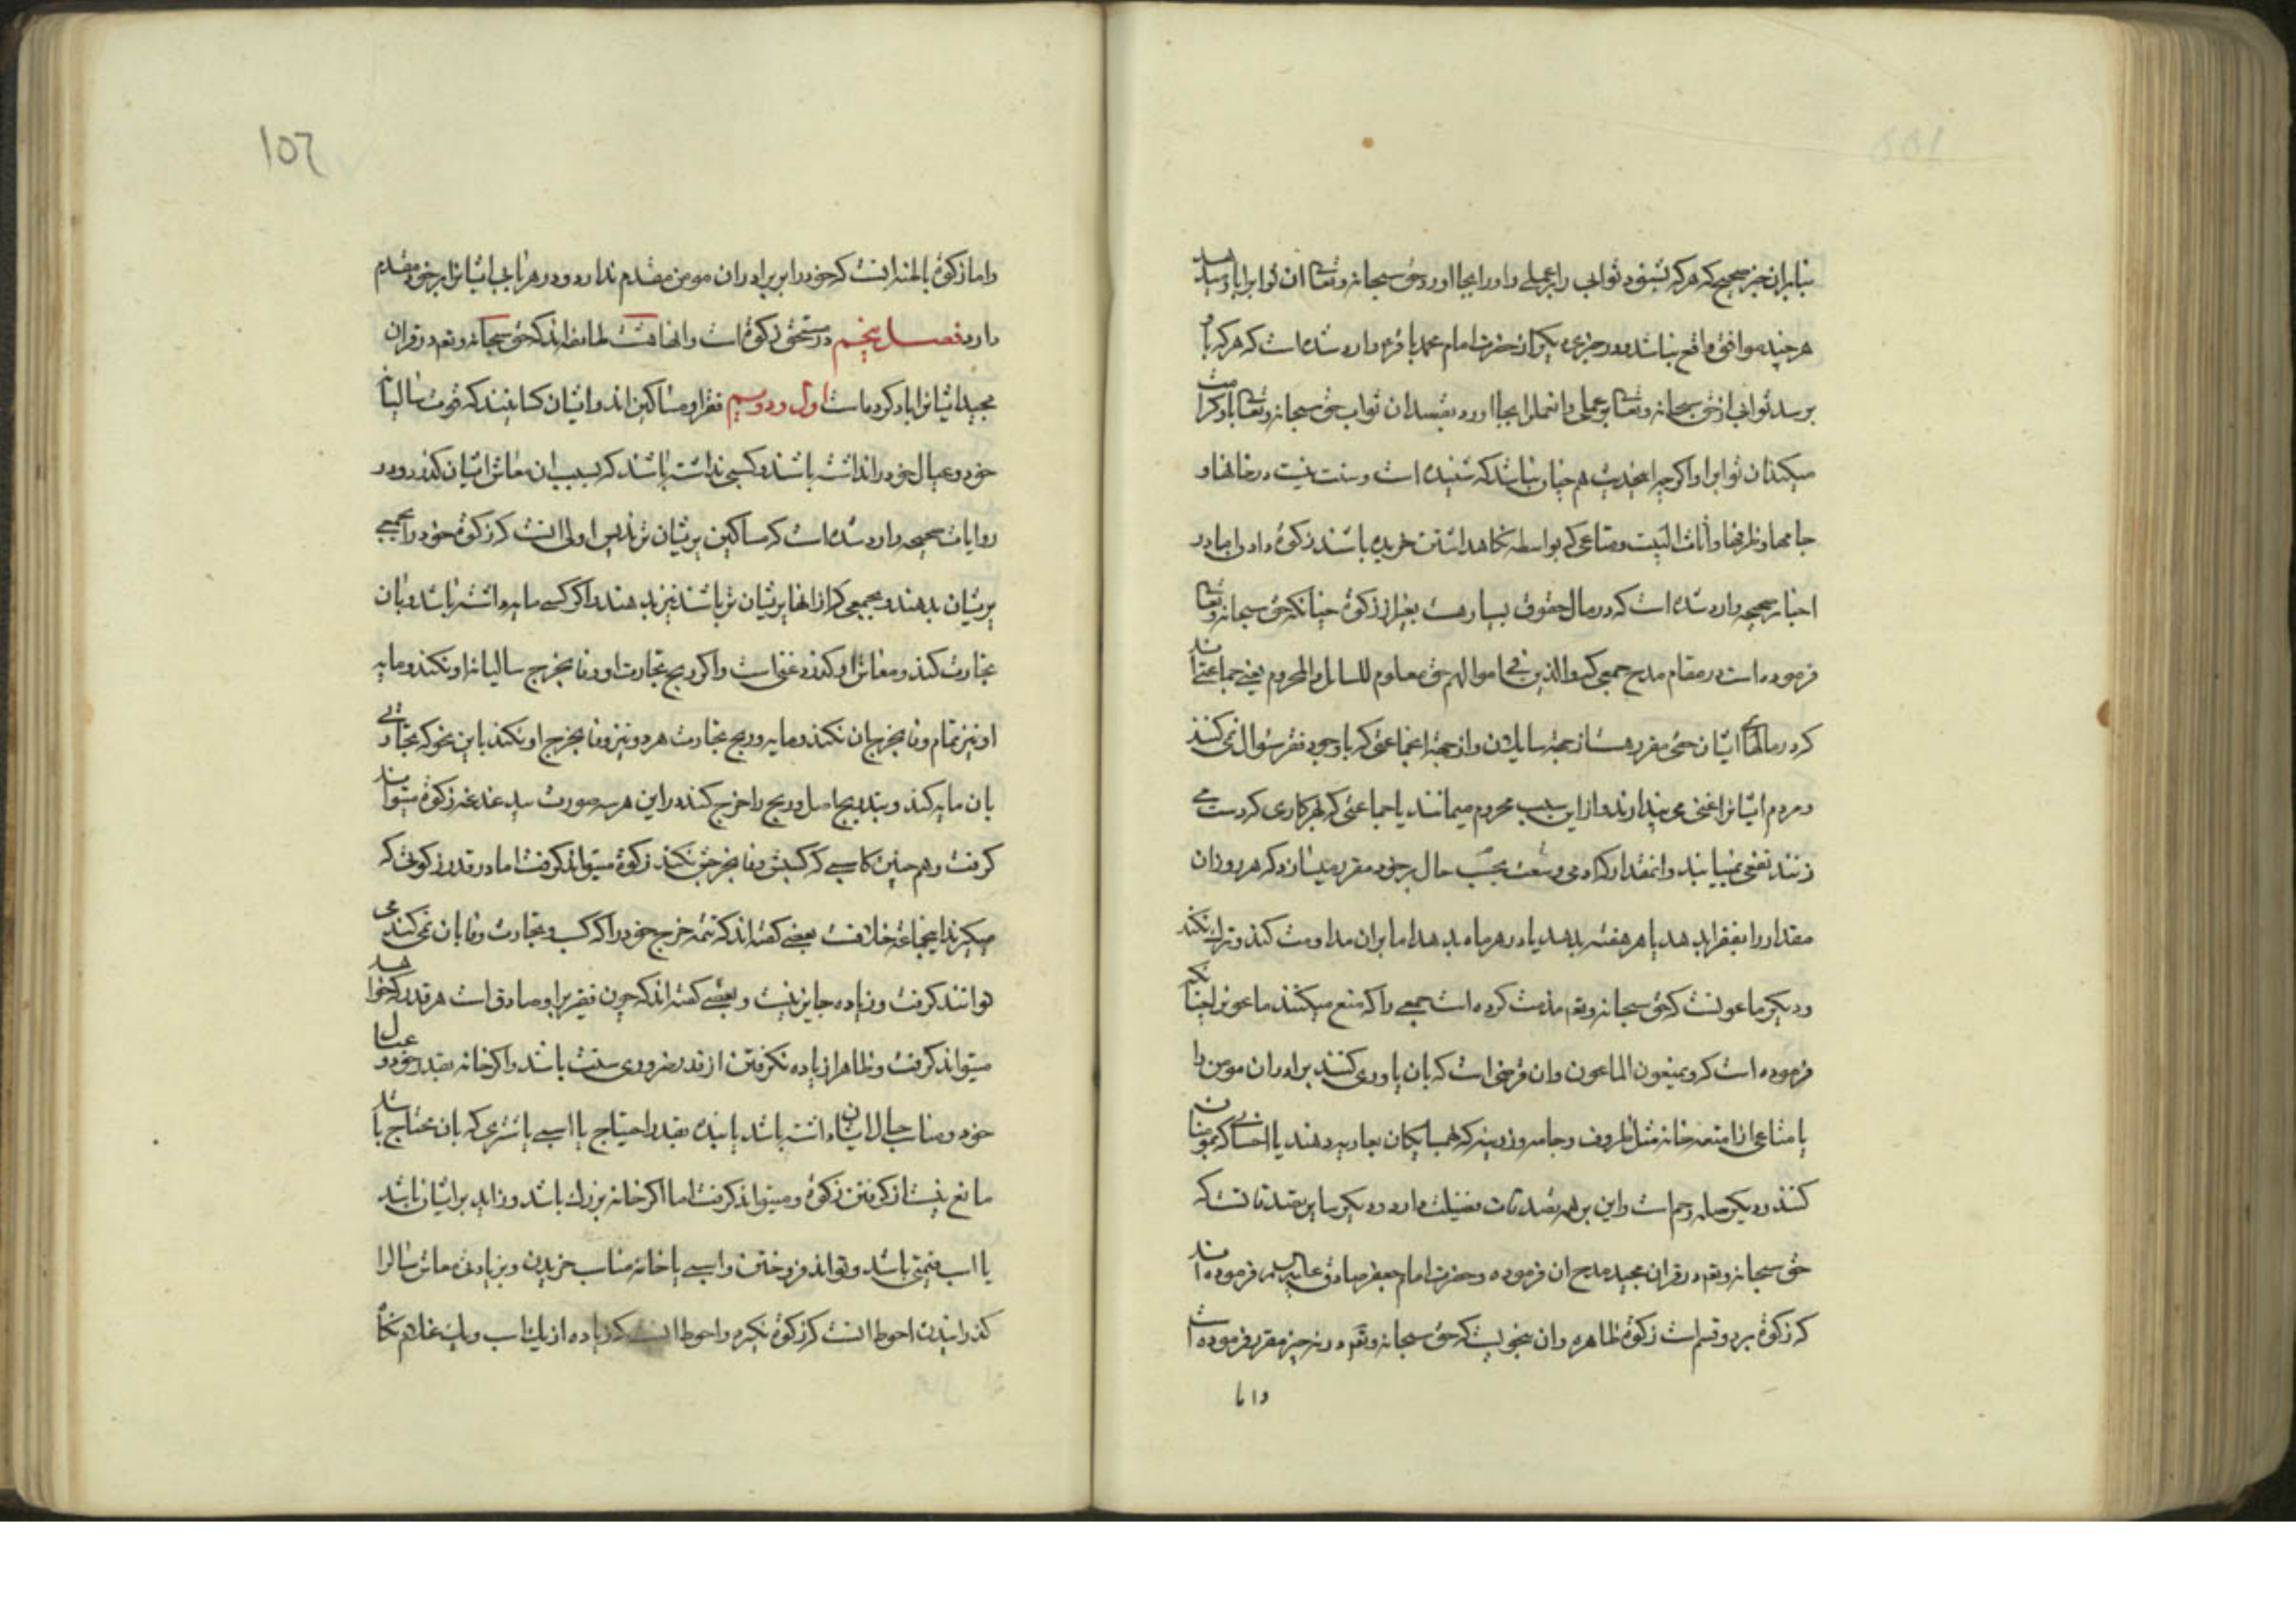 بنابر ان خبر صحیح که هر که بشنود ثوابی را بر عملی و او را بجا اورد حق سبحانه و تعالی ان ثواب را باو دهد
هر چند موافق واقع نباشد و در خبری دیکر از حضرت امام محمد باقر ع وارد شده است که هر که باو
برسد ثوابی از حق سبحانه و تعالی بر عملی و انعمل را بجا اورد بقصد ان ثواب حق سبحانه و تعالی باو کرامت
میکند ان ثواب را و اکر چه انحدیث هم چنان نباشد که شنیده است و سنت نیست در خانها و
جامها و ظرفها و اثاث البیت و متاعی که بواسطه نکاهداشتن خریده باشند زکوة دادن اما در
اخبار صحیحه وارد شده است که در مال حقوق بسیار هست بغیر از زکوة چنانکه حق سبحانه و تعالی
فرموده است در مقام مدح جمعی که والذین فی اموالهم حق معلوم للسائل والمحروم یعنی جماعتی اند
که در مالهای ایشان حقی مقرر هست از جهة سایلان و از جهة جماعتی که با وجود فقر سئوال نمی کنند
و مردم ایشانرا غنی می پندارند و از این سبب محروم میمانند یا جماعتی که بهر کاری که دست می
زنند نفعی نمی یابند و انمقدار که ادمی وسعت بحسب حال بر خود مقرر میسازد که هر روز ان
مقدار را بفقرا بدهد یا هر هفته بدهد یا در هر ماه بدهد اما بران مداومت کند و ترک نکند
و دیکر ماعونست که حق سبحانه و تعم مذمت کرده است جمعی را که منع میکنند ماعون را چنانکه
فرموده است که و یمنعون الماعون و ان قرضی است که بان یاوری کنند برادران مومن را
یا متاعی از امتعه خانه مثل ظروف و جامه و زر و زینه که بهمسایکان بعاریه دهند یا احسانی که بمومنان
کنند و دیکر صله رحم است و این بر همه تصدقات فضیلت دارد و دیکر سایر تصدقاتست که
حق سبحانه و تعم در قران مجید مدح ان فرموده و حضرت امام جعفر صادق علیه السلم فرموده اند
که زکوة بر دو قسم است زکوة ظاهره و ان نحویست که حق سبحانه و تعم در نه چیز مقرر فرموده است
و اما
102
و اما زکوة باطنه انست که خود را بر برادران مومن مقدم ندارد و در هر بابی ایشانرا بر خود مقدم
دارد فصل پنجم در مستحق زکوة است و انها هشت طایفه اند که حق سبحانه و تعم در قران
مجید ایشانرا یاد کرده است اول و دویم فقرا و مساکین اند و ایشان کسانیند که قوت سالیانه
خود و عیال خود را نداشته باشند و کسبی نداشته باشند که بسبب ان معاش ایشان کذرد و در
روایات صحیحه وارد شده است که مساکین پریشان ترند پس اولی انست که زکوة خود را بجمعی
پریشان بدهند و بجمعی که از انها پریشان تر باشند نیز بدهند و اکر کسی مایه داشته باشد و بان
تجارت کند و معاش او کذرد غنی است و اکر ربح تجارت او وفا بخرج سالیانه او نکند و مایه
او نیز تمام وفا بخرج ان نکند و مایه و ربح تجارت هر دو نیز وفا بخرج او نکند باین نحو که تجارتی
بان مایه کند و بتدریج اصل و ربح را خرج کند در این هر سه صورت بیدغدغه زکوة میتواند
کرفت و هم چنین کاسبی که کسبش وفا بخرجش نکند زکوة میتواند کرفت اما در قدر زکوتی که
میکیرند اینجماعة خلافست بعضی کفته اند که تتمه خرج خود را که کسب و تجارت وفا بان نمی کند می
توانند کرفت و زیاده جایز نیست و بعضی کفته اند که چون فقیر بر او صادق است هر قدر که خواهد
میتواند کرفت و ظاهرا زیاده نکرفتن از قدر ضروری سنت باشد و اکر خانه بقدر خود و عیال
خود و مناسب حال ایشان داشته باشد یا بنده بقدر احتیاج یا اسبی یا شتری که بان محتاج باشد
مانع نیست از کرفتن زکوة و میتواند کرفت اما اکر خانه بزرک باشد و زاید بر ایشان باشد
یا اسب قیمتی باشد و تواند فروختن و اسبی یا خانه مناسب خریدن و بزیادتی معاش سال را
کذرانیدن احوط انست که زکوة نکیرد و احوط انست که زیاده از یک اسب و یک غلام نکاه